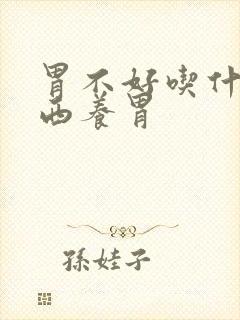 胃不好喫什
西养胃
孫娃子